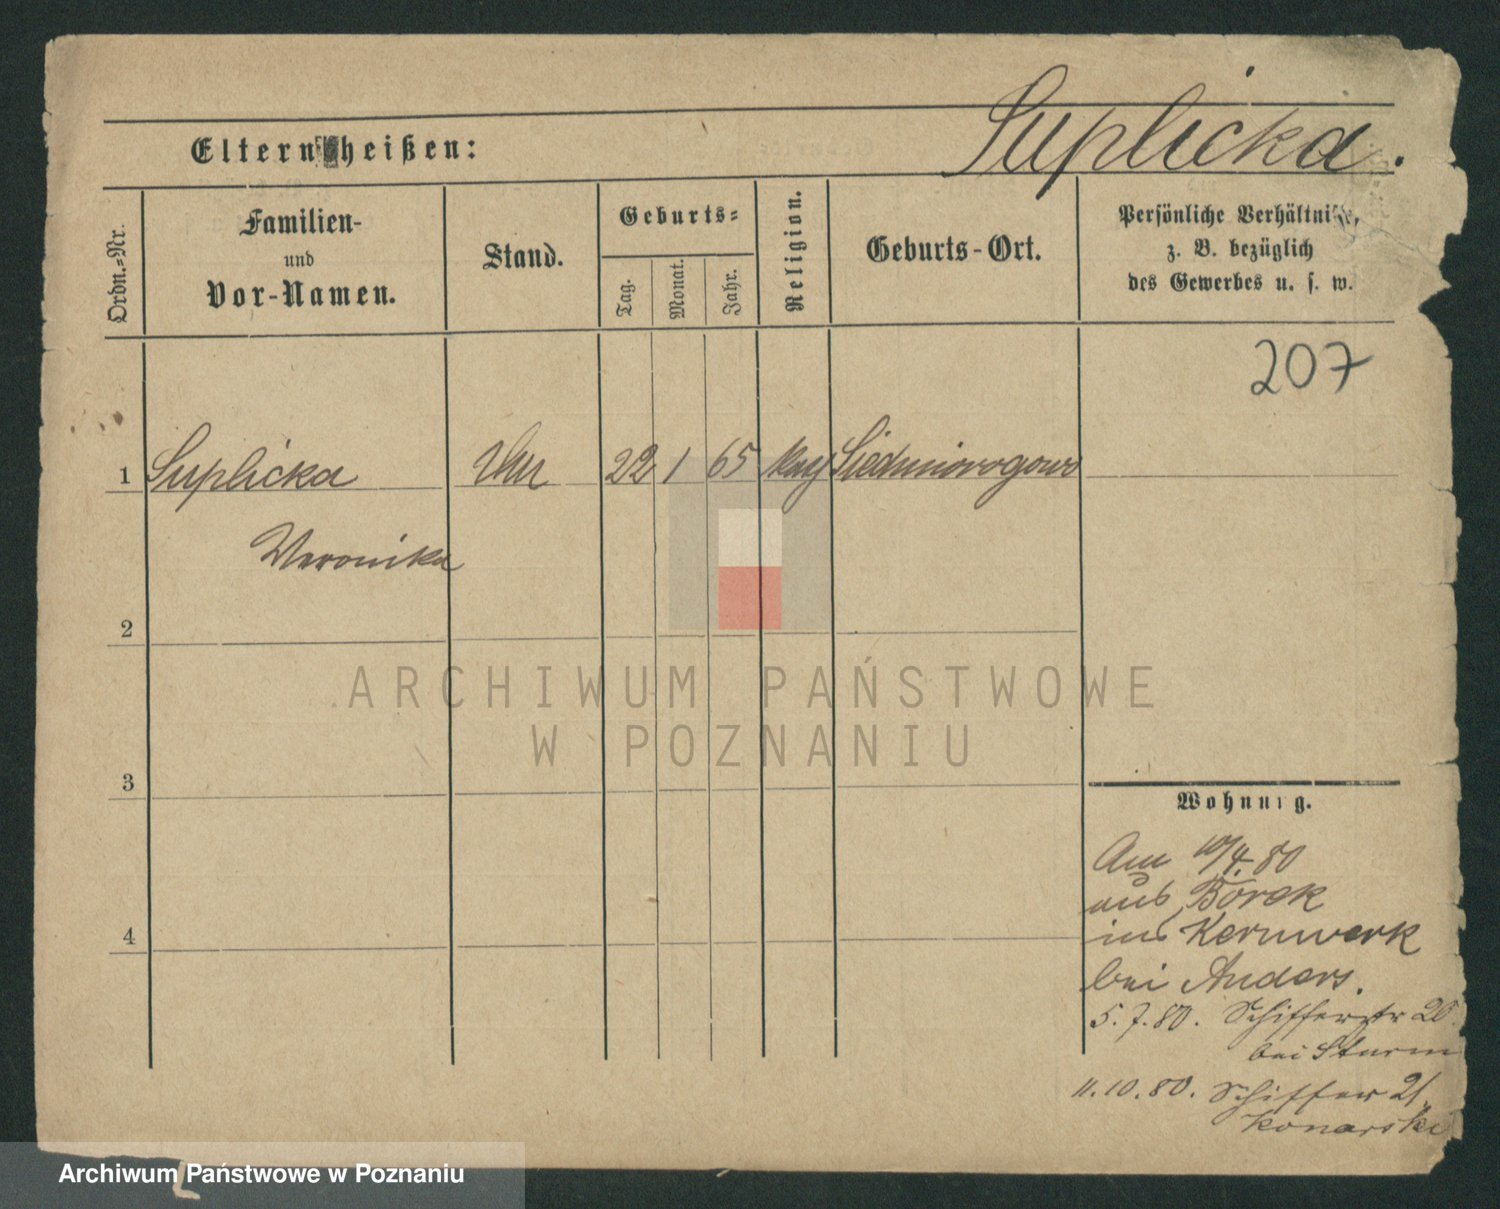 Suplicka.
Eltern heißen:
Ordn.=Nr.
Familien-
und
Vor-Namen.
Stand.
Geburts=
Tag.
Monat.
Jahr.
Religion.
Geburts-Ort.
Persönliche Verhältnisse,
z. B. bezüglich
des Gewerbes u. s. w.
207
1 Suplicka 22 1 65 Siedmiorogowo
Veronika
2
3
4
Wohnung.
Am 10/4. 80
aus Borek
ins Kernwerk
bei Anders.
5.7.80. Schifferstr 20
bei Sturm
11.10.80. Schiffer 21
Konarski
ARCHIWUM PAŃSTWOWE
W POZNANIU
Archiwum Państwowe w Poznaniu